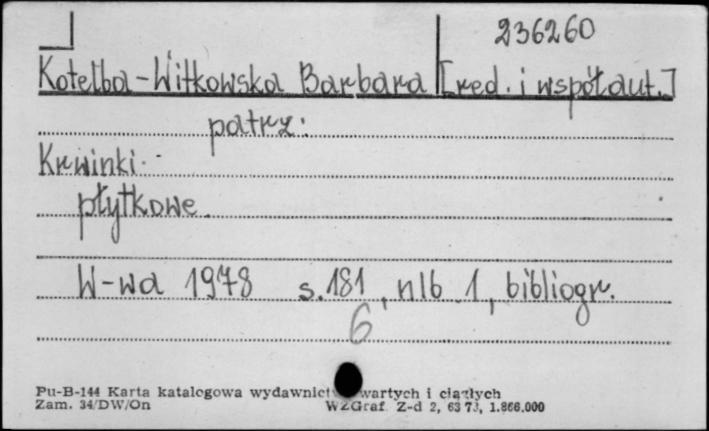 236260
Kotelba-Witkowska Barbara [red. i współaut.]
patrz:
Krwinki
płytkowe
W-wa 1978 s. 181, nlb 1, bibliogr.
6
Pu-B-144 Karta katalogowa wydawnict wartych i ciągłych
Zam. 34/DW/On WZGraf. Z-d 2, 63 73, 1.866.000